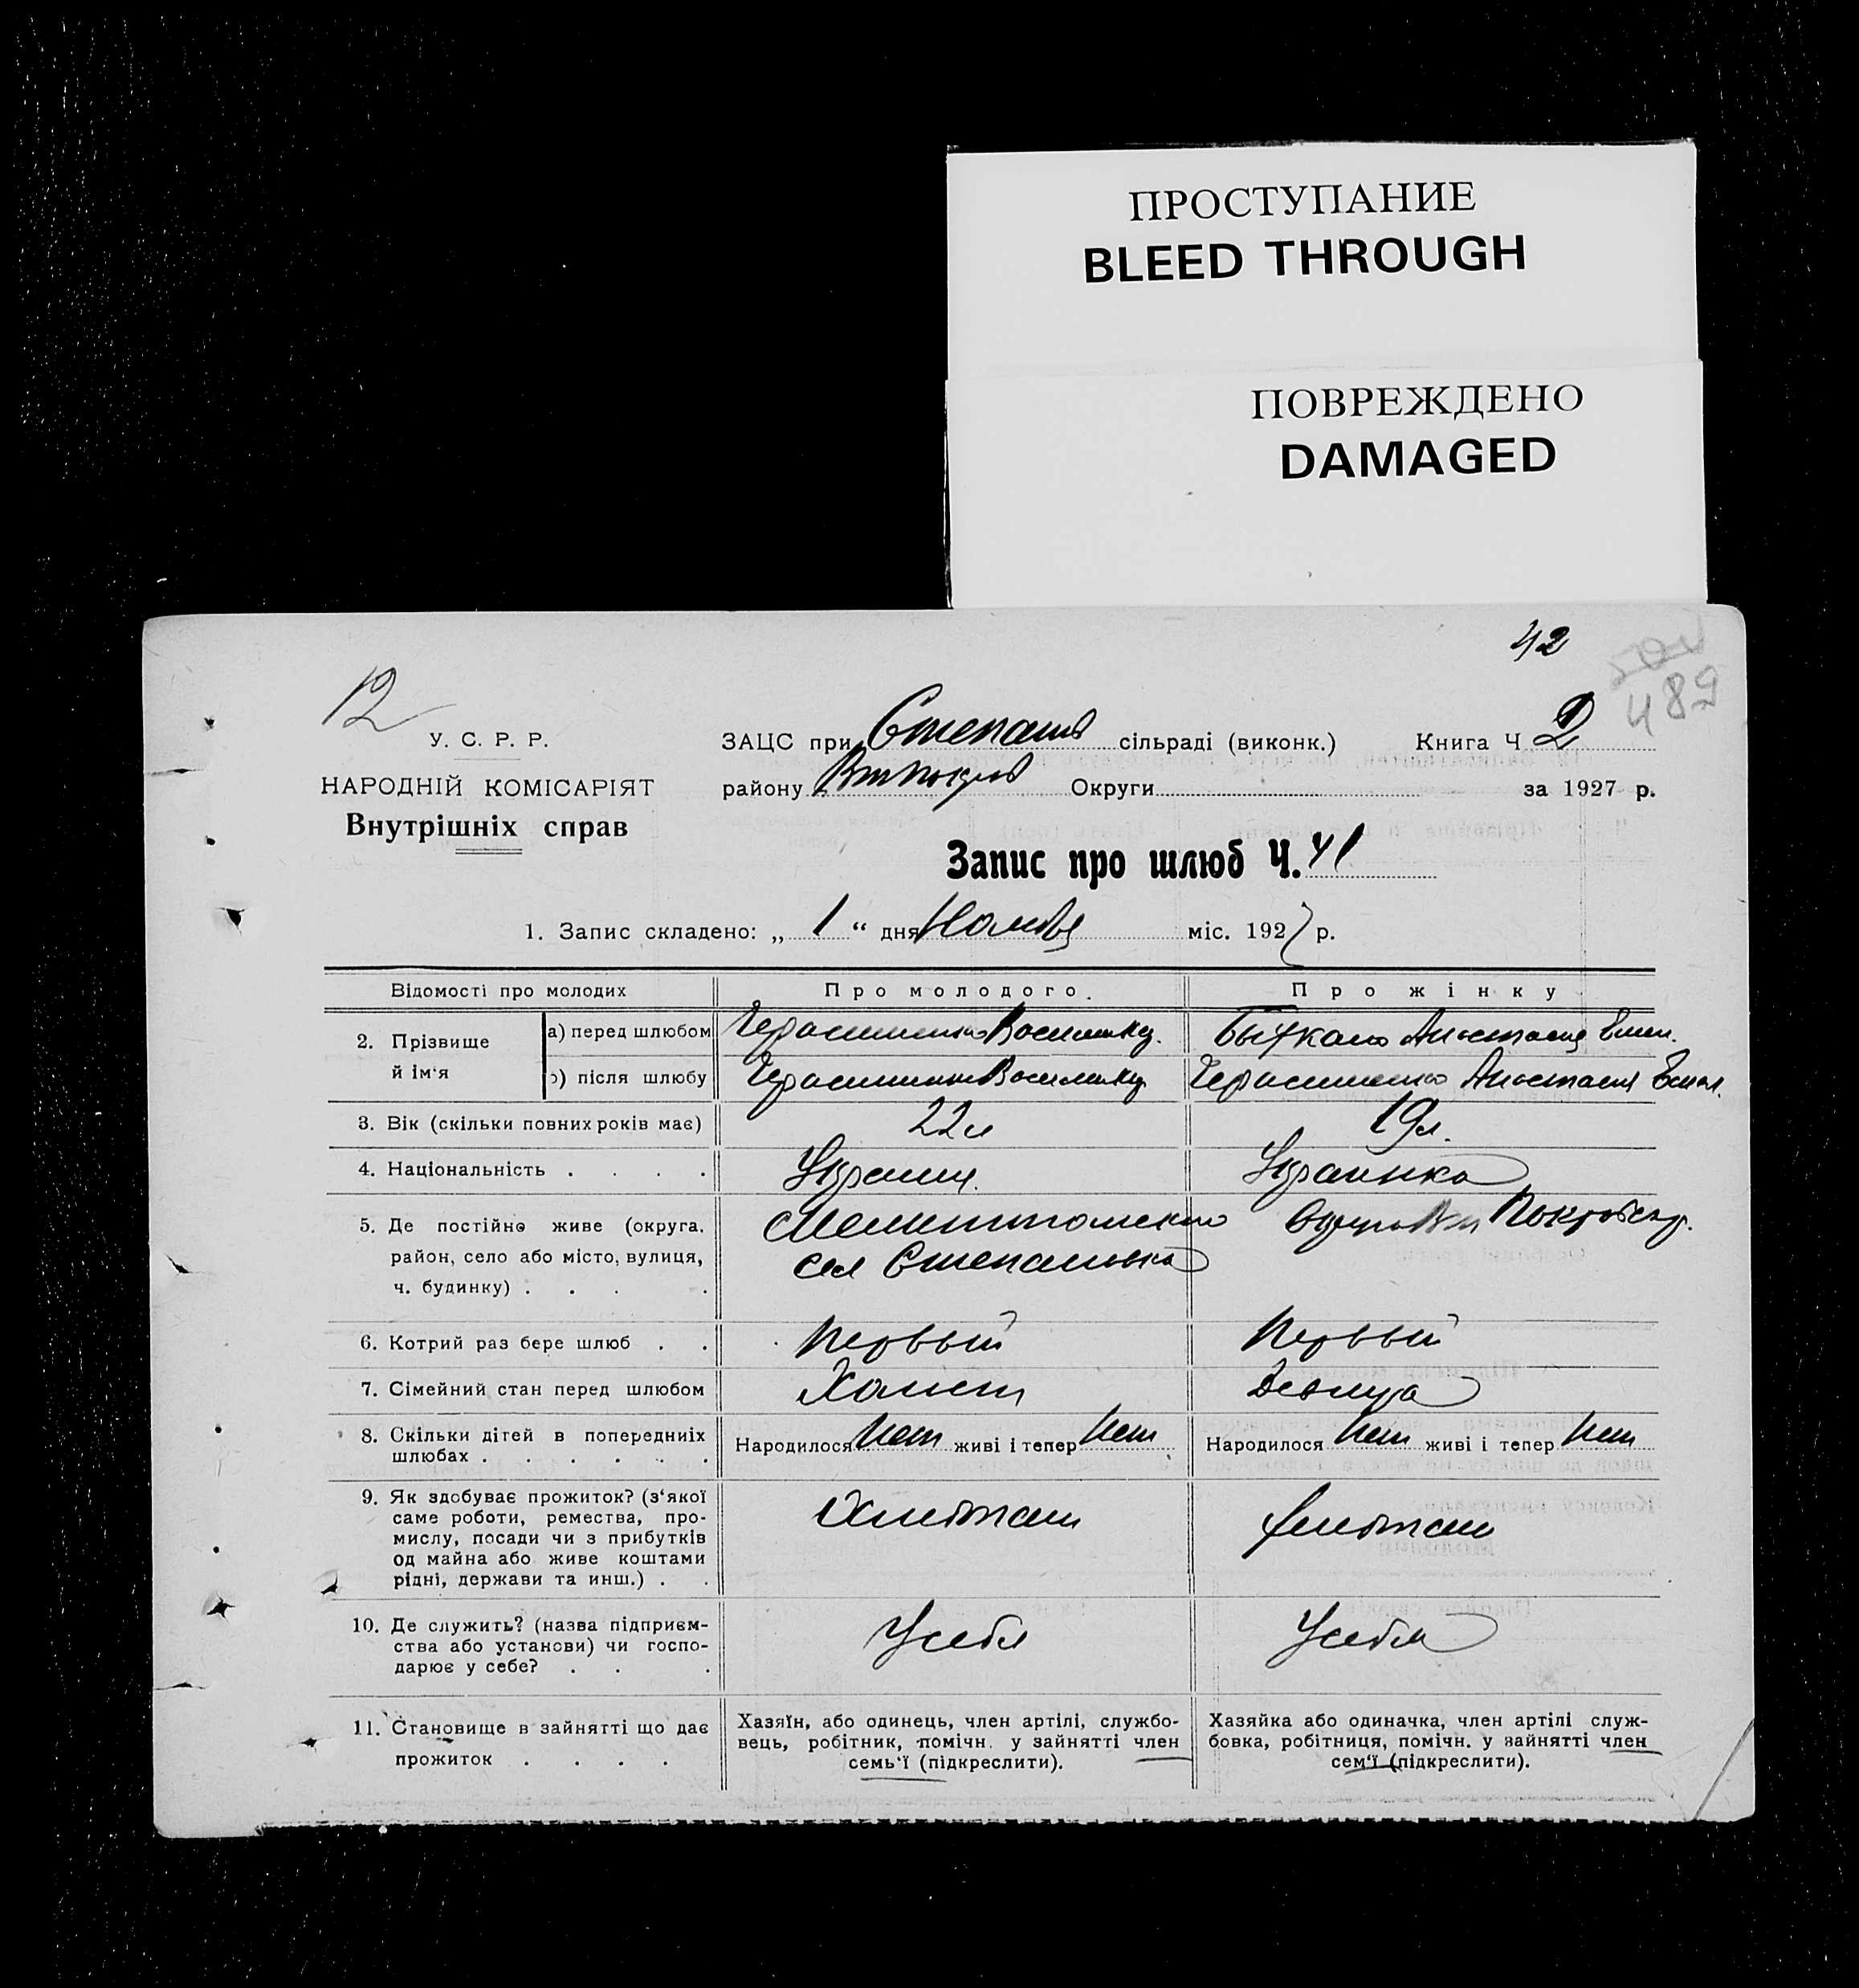 ПРОСТУПАНИЕ
BLEED THROUGH
ПОВРЕЖДЕНО
DAMAGED
42
489
12
У. С. Р. Р.
НАРОДНІЙ КОМІСАРІЯТ
Внутрішніх справ
ЗАЦС при Степанов сільраді (виконк.) Книга Ч 2
району Округи за 1927 р.
Запис про шлюб Ч. 41
1. Запис складено: „ 1 “ дня Ноября міс. 1927 р.
Відомості про молодих Про молодого. Про жінку
2. Прізвище й ім‘я
а) перед шлюбом Герасименко Василий Анастасия
б) після шлюбу Герасименко Василий Герасименко Анастасия
3. Вік (скільки повних років має) 22 л 19 л.
4. Національність . . . . Украин. Украинка
5. Де постійно живе (округа, Мелитопольского Покровск. р.
район, село або місто, вулиця, сел Степановка
ч. будинку) . . . .
6. Котрий раз бере шлюб . . Первый Первый
7. Сімейний стан перед шлюбом Холост Девица
8. Скільки дітей в попередниіх Народилося Нет живі і тепер Нет Народилося Нет живі і тепер Нет
шлюбах . . . . . .
9. Як здобуває прожиток? (з‘якої
саме роботи, ремества, про-
мислу, посади чи з прибутків
од майна або живе коштами
рідні, держави та инш.) . . Хлебопаш Хлебопаш
10. Де служить? (назва підприєм-
ства або установи) чи госпо-
дарює у себе? . . . У себя У себя
11. Становище в зайнятті що дає
прожиток . . . .
Хазяїн, або одинець, член артілі, службо-
вець, робітник, помічн. у зайнятті член
семь‘ї (підкреслити).
Хазяйка або одиначка, член артілі служ-
бовка, робітниця, помічн. у зайнятті член
сем‘ї (підкреслити).